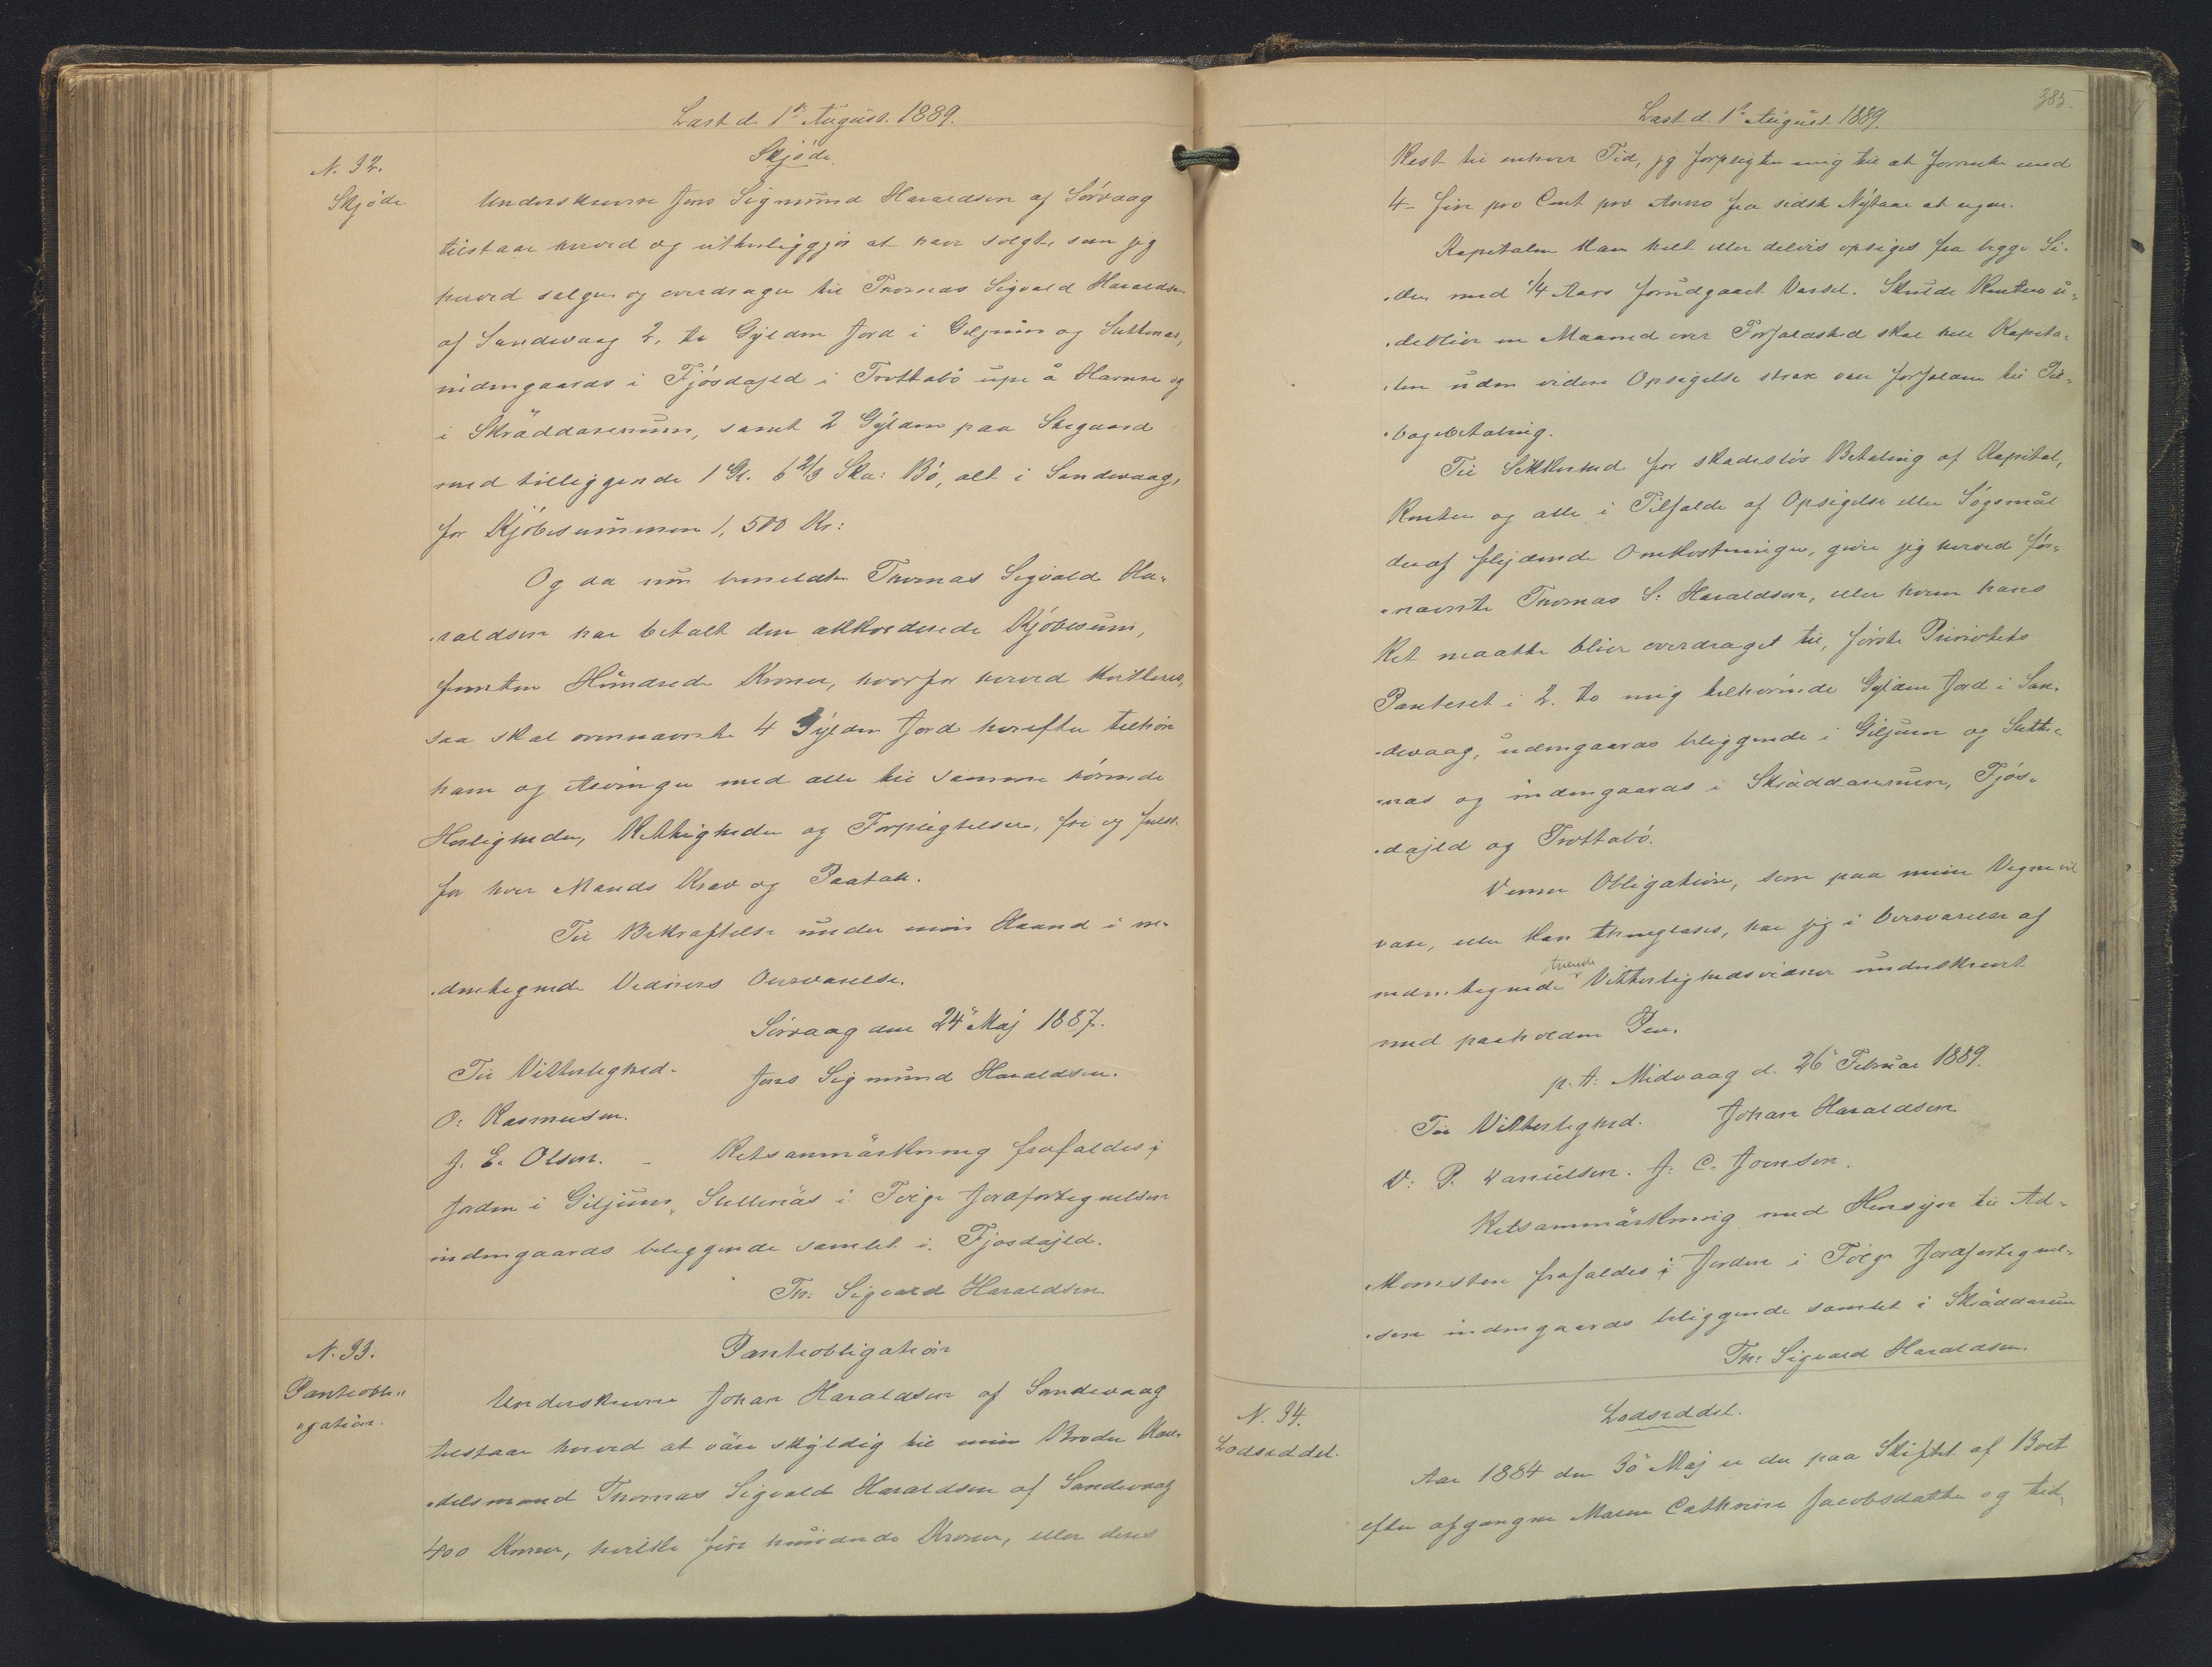 Læst d. 1ste August. 1889.
N. 32.
Skjøde
Skjøde.
Underskrevne Jens Sigmund Haraldsen af Sörvaag
tilstaar herved og vitterliggjør at have solgt, som jeg
herved sælger og overdrager til Thomas Sigvald Haraldsen
af Sandevaag 2, to Gylden Jord i Giljum og Suttenæs,
indengaards i Fjósdajld i Trottabö upi á Havnen og
i Skräddarenum, samt 2 Gylden paa Skegaard
med tilliggende 1 Gl. 6 2/3 Ska: Bö, alt i Sandevaag,
for Kjöbesummen 1,500 Kr:
Og da nu bemeldte Thomas Sigvald Ha-
raldsen har betalt den akkorderede Kjöbesum,
femten Hundrede Kroner, hvorfor herved kvitteres,
saa skal ovennævnte 4 Gylden Jord herefter tilhøre
ham og Arvinger med alle til samme hörende
Herligheder, Rettigheder og Forpligtelser, fri og frelst
for hver Mands Krav og Paatale.
Til Bekræftelse under min Haand i ne-
dentegnede Vedners Overværelse.
Sörvaag den 24de Maj 1887.
Til Vitterlighed. Jens Sigmund Haraldsen.
O: Rasmusen.
J. E. Olsen. - Retsanmärkning frafaldes;
Jorden i Giljum, Suttenäs i Følge Jordfortegnelsen
indengaards beliggende samlet i. Fjosdajld.
Th: Sigvald Haraldsen
N. 33.
Panteobli-
gation.
Panteobligation
Underskrevne Johan Haraldsen af Sandevaag
tilstaar herved at være skyldig til min Broder Han-
delsmand Thomas Sigvald Haraldsen af Sandevaag
400 Kroner, hvilke fire hundrede Kroner, eller deres
385.
Læst d. 1ste August 1889.
Rest til enhver Tid, jeg forpligter mig til at forrente med
4- fire pro Cent pro Anno fra sidste Nytaar at regne.
Kapitalen kan helt eller delvis opsiges fra begge Si-
der med 1/4 Aars forudgaaet Varsel. Skulde Renten u-
debliver en Maaned over Forfaldstid skal hele Kapita-
len uden videre Opsigelse strax være forfalden til Til-
bagebetaling.
Til Sikkerhed for skadesløs Betaling af Kapital,
Renter og alle i Tilfælde af Opsigelse eller Søgsmål
deraf flydende Omkostninger, giver jeg herved for-
nævnte Thomas S: Haraldsen, eller hvem hans
Ret maatte bliver overdraget til, förste Prioritets
Panteret i 2. to mig tilhörende Gylden Jord i San-
devaag, udengaards beliggende i Giljum og Sutte-
næs og indengaards i Skräddarenum, Fjós-
dajld og Trottabö.
Denne Obligation, som paa mine Vegne vil
være, eller kan thinglæses, har jeg i Overværelse af
nedentegnede tvende Vitterlighedsvidner underskrevet
med paaholden Pen.
p. t. Midvaag d. 26de Februar 1889.
Til Vitterlighed. Johan Haraldsen
D: P. Danielsen. J: C. Joensen.
Retsanmärkning med Hensyn til Ad-
komsten frafaldes; Jorden i Følge Jordfortegnel-
sen indengaards beliggende samlet i Skräddarenum
Th: Sigvald Haraldsen.
N. 34.
Lodseddel.
Lodseddel.
Aar 1884 den 30te Maj er der paa Skiftet af Boet
efter afgangne Maren Cathrine Jacobsdatter og tid.